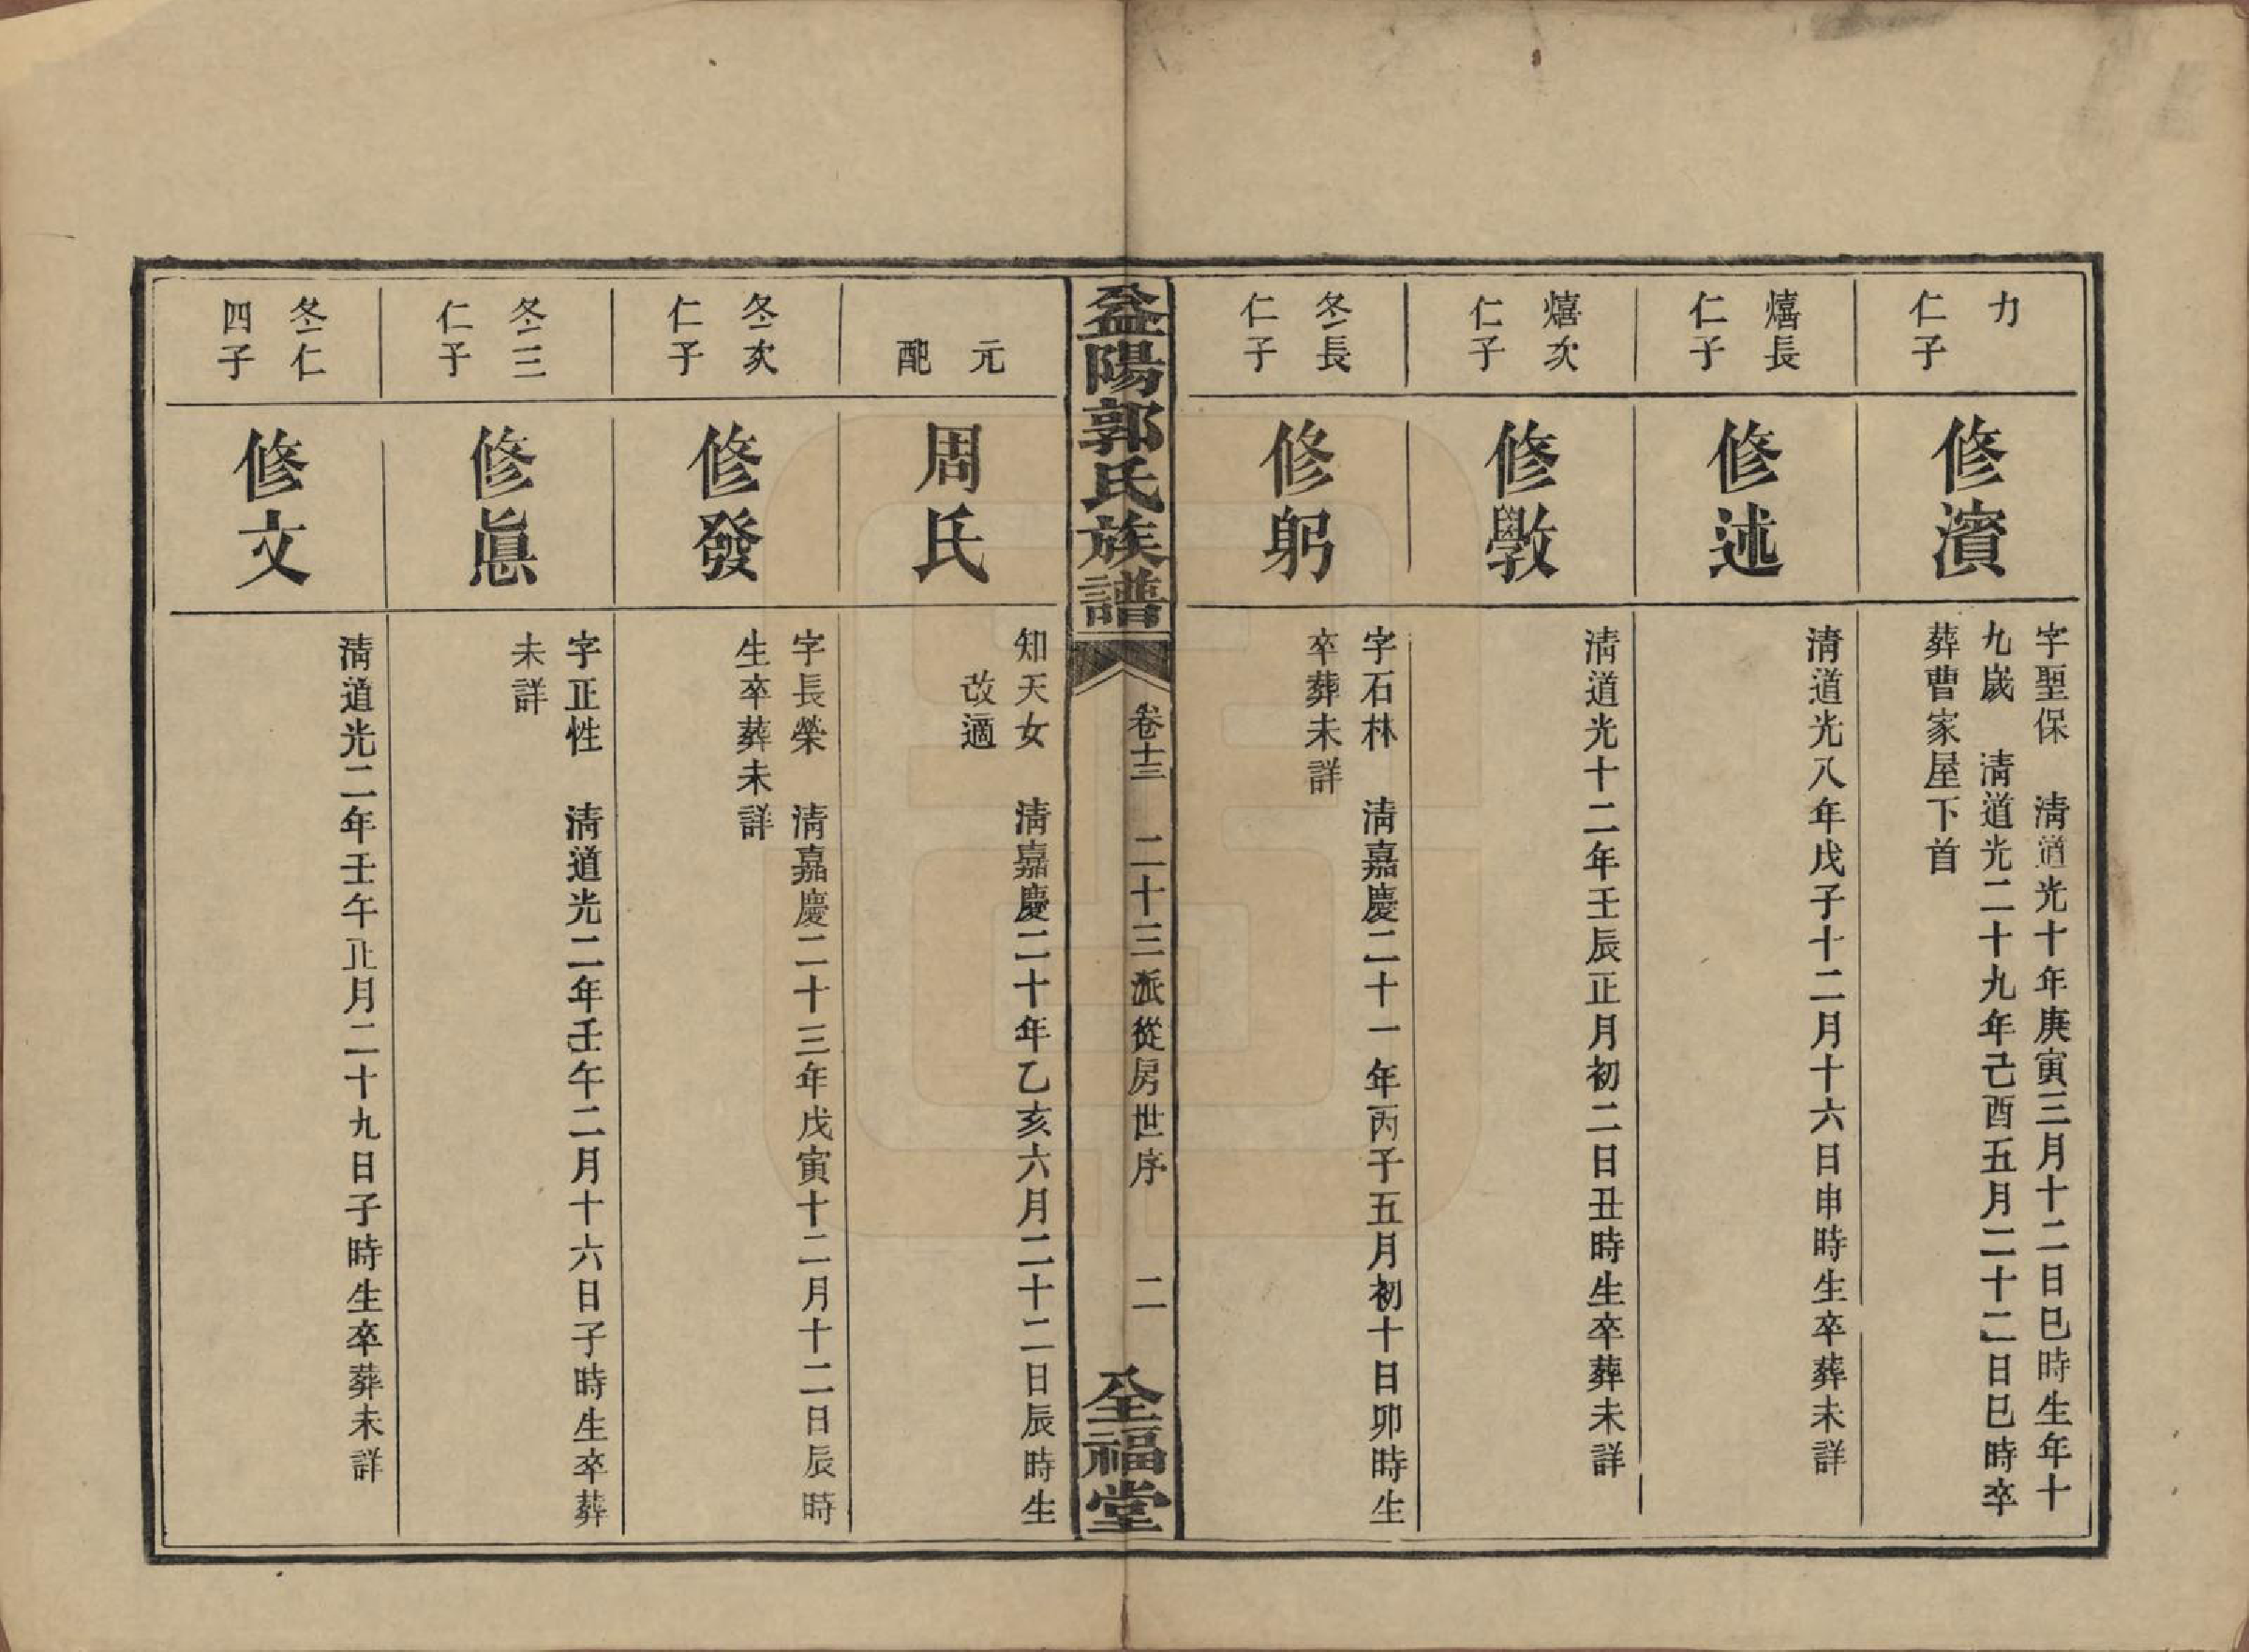 力
仁子
修濱
字聖保　清道光十年庚寅三月十二日巳時生年十
九歲　清道光二十九年己酉五月二十二日巳時卒
葬曹家屋下首
熺長
仁子
修述
清道光八年戊子十二月十六日申時生卒葬未詳
熺次
仁子
修斆
清道光十二年壬辰正月初二日丑時生卒葬未詳
冬長
仁子
修躬
字石林　清嘉慶二十一年丙子五月初十日卯時生
卒葬未詳
益陽郭氏族譜
卷十三　二十三派從房世序　二
全福堂
元
配
周氏
知天女　清嘉慶二十年乙亥六月二十二日辰時生
改適
冬次
仁子
修發
字長榮　清嘉慶二十三年戊寅十二月十二日辰時
生卒葬未詳
冬三
仁子
修眞
字正性　清道光二年壬午二月十六日子時生卒葬
未詳
冬仁
四子
修文
清道光二年壬午正月二十九日子時生卒葬未詳